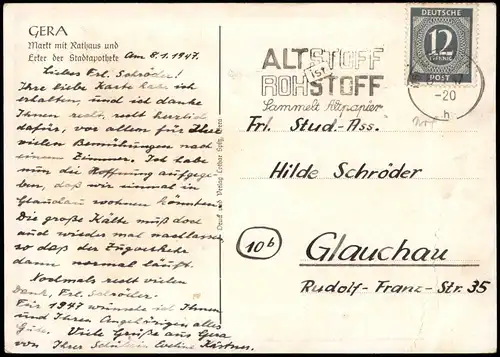 GERA
Markt mit Rathaus und
Erker der Stadtapotheke
Am 8.1.1947.
Liebes Frl. Schröder!
Ihre liebe Karte habe ich
erhalten, und ich danke
Ihnen recht, recht herzlich
dafür, vor allem für Ihre
vielen Bemühungen nach
einem Zimmer. Ich habe
nun die Hoffnung aufgege-
ben, daß wir einmal in
Glauchau wohnen könnten.
Die große Kälte muß doch
auch wieder mal nachlassen,
so daß der Zugverkehr
dann normal läuft.
Nochmals recht vielen
Dank, Frl. Schröder.
Für 1947 wünsche ich Ihnen
und Ihren Angehörigen alles
Gute. Viele Grüße aus Gera
von Ihrer Schülerin Eveline Kästner.
Druck und Verlag Lothar Gera
ALTSTOFF
ist
ROHSTOFF
Sammelt Altpapier
DEUTSCHE
12
PFENNIG
POST
-20
h
Frl. Stud.-Ass.
Hilde Schröder
10b
Glauchau
Rudolf-Franz-Str. 35